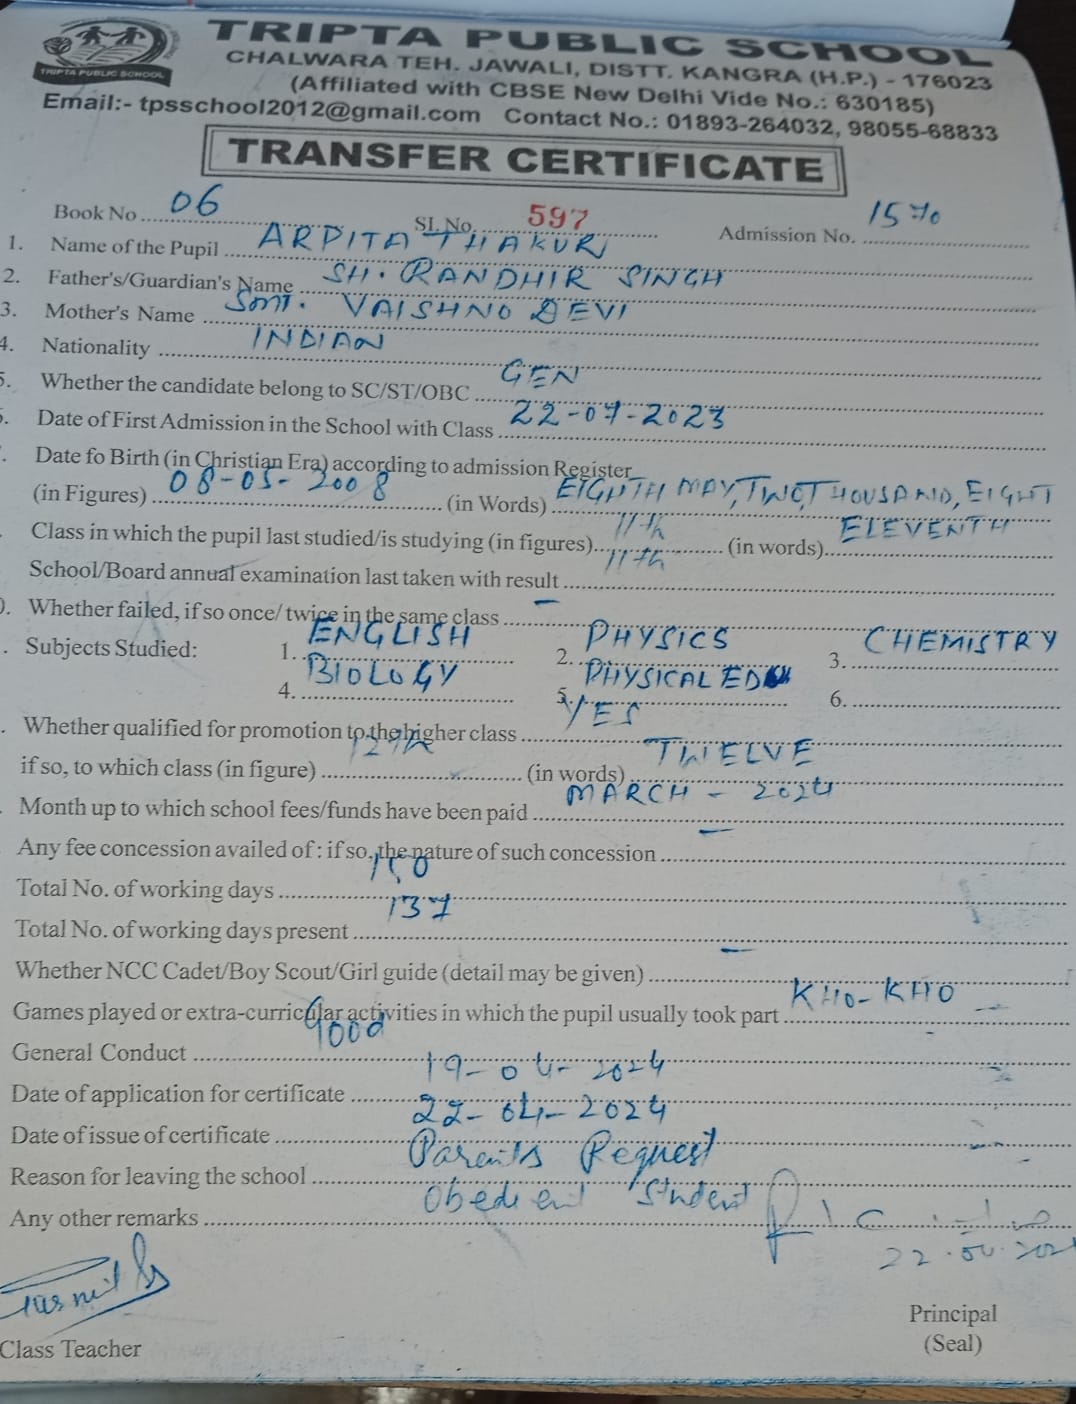 TRIPTA PUBLIC SCHOOL
TRIPTA PUBLIC SCHOOL
CHALWARA TEH. JAWALI, DISTT. KANGRA (H.P.) - 176023
(Affiliated with CBSE New Delhi Vide No.: 630185)
Email:- tpsschool2012@gmail.com Contact No.: 01893-264032, 98055-68833
TRANSFER CERTIFICATE
Book No 06 Sl. No. 597 Admission No. 1570
1. Name of the Pupil ARPITA THAKUR
2. Father's/Guardian's Name SH. RANDHIR SINGH
3. Mother's Name Smt. VAISHNO DEVI
4. Nationality INDIAN
5. Whether the candidate belong to SC/ST/OBC GEN
. Date of First Admission in the School with Class 22-07-2023
. Date fo Birth (in Christian Era) according to admission Register
(in Figures) 08-05-2008 (in Words) EIGHTH MAY, TWO THOUSAND, EIGHT
Class in which the pupil last studied/is studying (in figures) 11th (in words) ELEVENTH
School/Board annual examination last taken with result 11th
0. Whether failed, if so once/ twice in the same class –
. Subjects Studied: 1. ENGLISH 2. PHYSICS 3. CHEMISTRY
4. BIOLOGY 5. PHYSICAL EDU 6.
. Whether qualified for promotion to the higher class YES
if so, to which class (in figure) 12th (in words) TWELVE
. Month up to which school fees/funds have been paid MARCH - 2024
Any fee concession availed of : if so, the nature of such concession –
Total No. of working days
Total No. of working days present 137
Whether NCC Cadet/Boy Scout/Girl guide (detail may be given) –
Games played or extra-curricular activities in which the pupil usually took part KHO-KHO
General Conduct Good
Date of application for certificate 19-04-2024
Date of issue of certificate 22-04-2024
Reason for leaving the school Parents Request
Any other remarks Obedient Student
Class Teacher
Principal
(Seal)